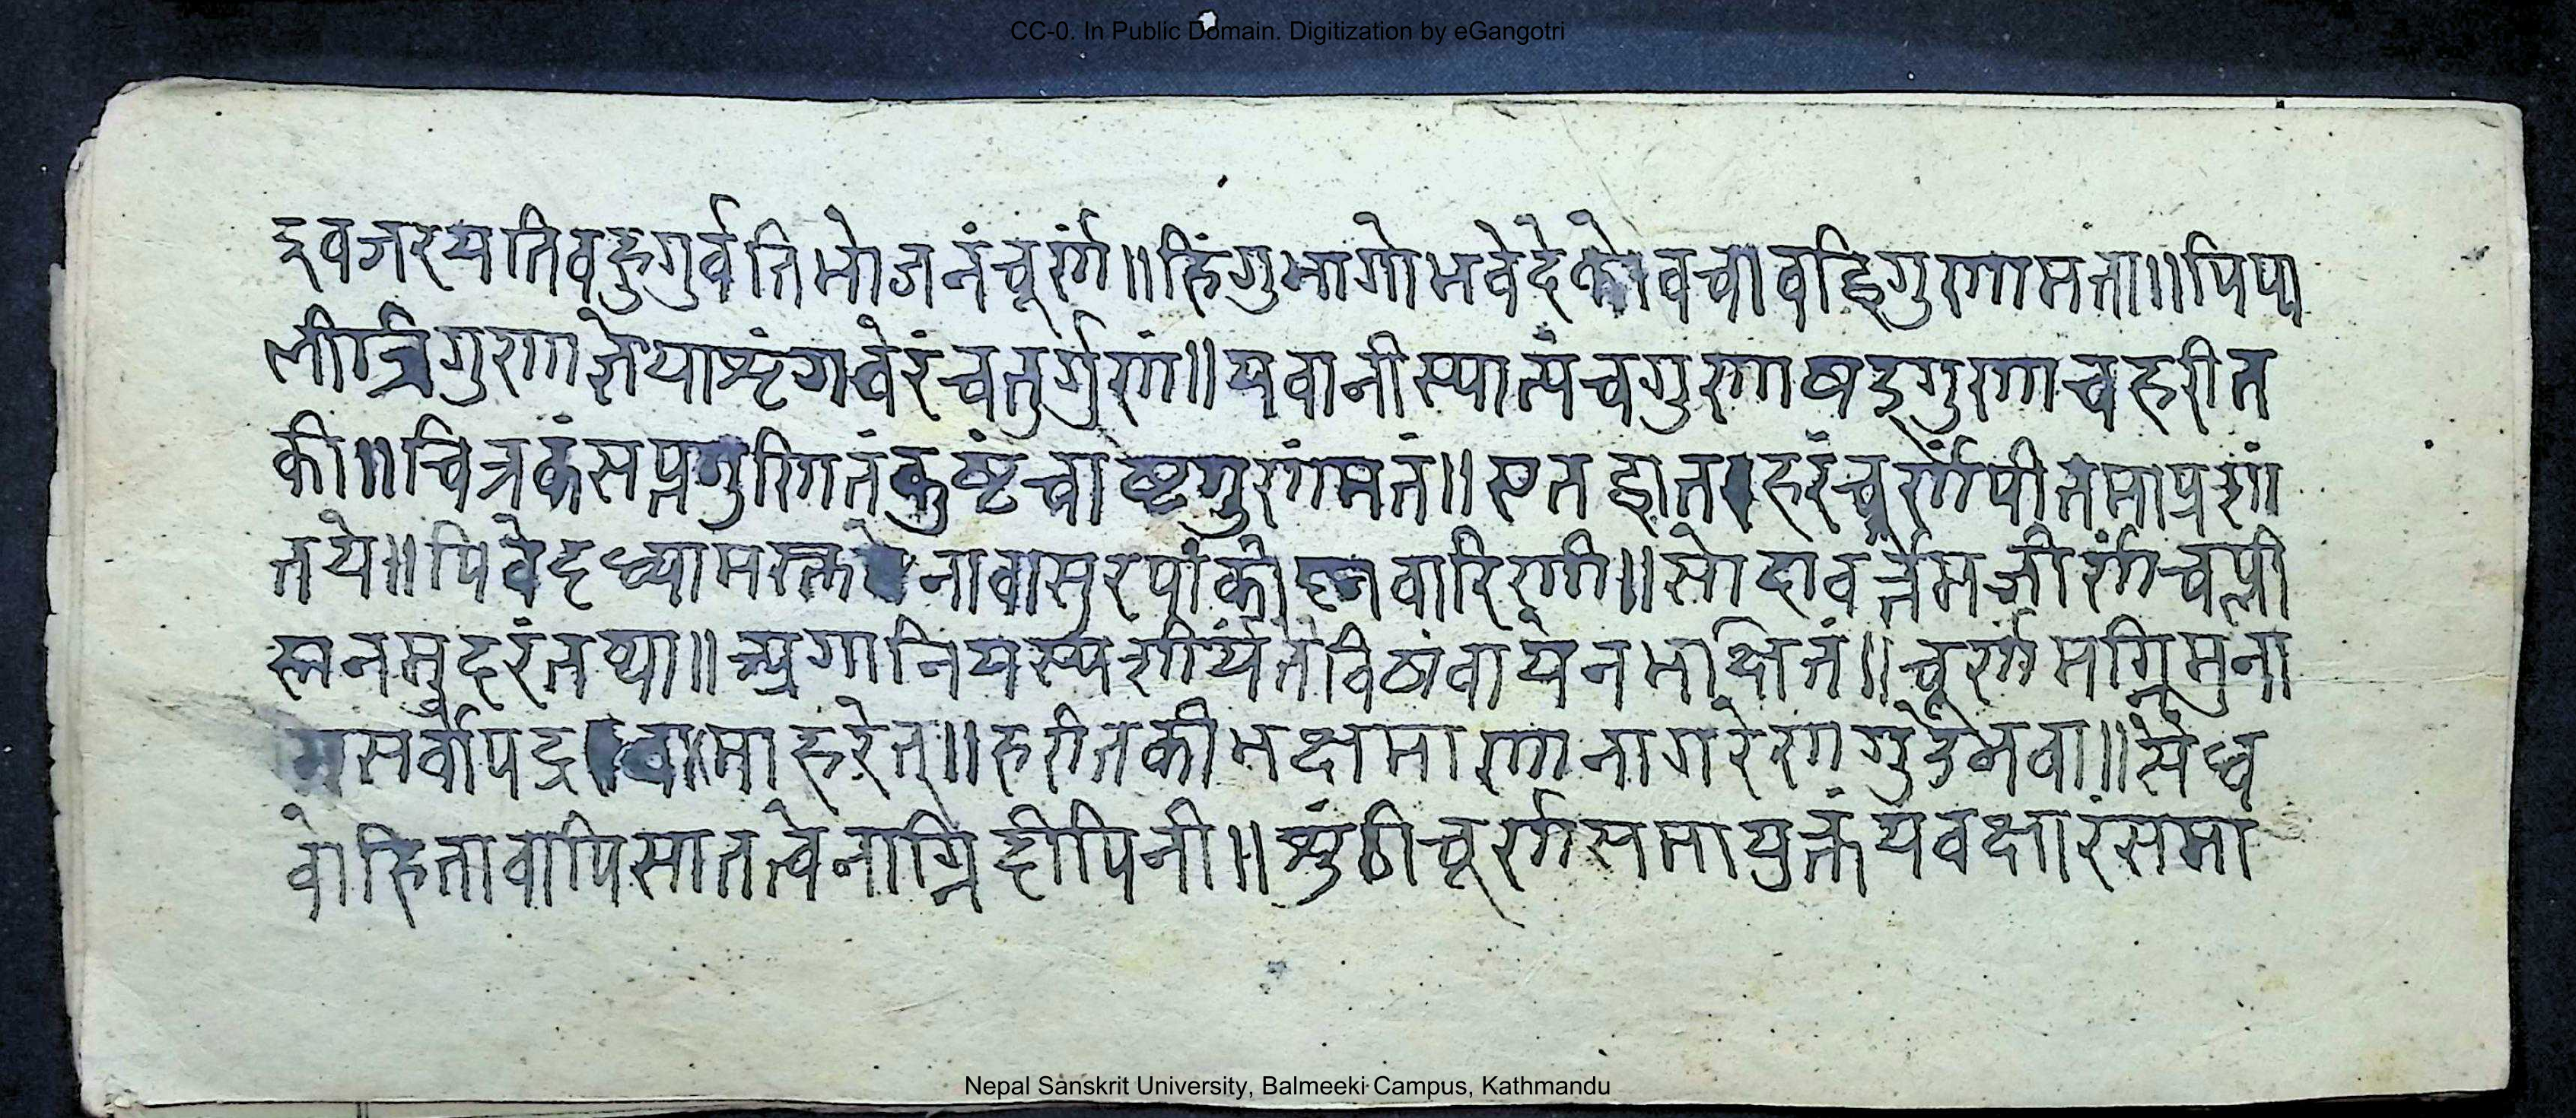 CC-0. In Public Domain. Digitization by eGangotri
द्दवजरयतिबहुगुर्वतिभोजनंचूर्णं॥हिंगुभागोभवेदेको वचाचद्विगुणामता॥पिप्प
लीत्रिगुणाज्ञेयाशृंगवेरंचतुर्गुणं॥यवानीस्यात्पंचगुणाषड्गुणाचहरीत
की॥चित्रकंसप्तगुणितंकुष्टंचाष्टगुणंमतं॥एतद्वात हरंचूर्णंपीतमाप्रशां
तये॥पिवेद्दध्यामस्त नावासुरयाकोष्णवारिणा॥सोदावर्त्तमजीर्णंचप्ली
हानमुदरंतथा॥अंगानियस्यशीर्यंतेविषंवायेनभक्षितं॥चूर्णमग्निमुना
मसर्वोपद्र वामाहरेत्॥हरीतकीभक्षमाणानागरेणगुडेनवा॥सैंधव
वोहितावापिसातत्वेनाग्निदीपिनी॥शुंठीचूर्णसमायुक्तंयवक्षारंसमा
Nepal Sanskrit University, Balmeeki Campus, Kathmandu